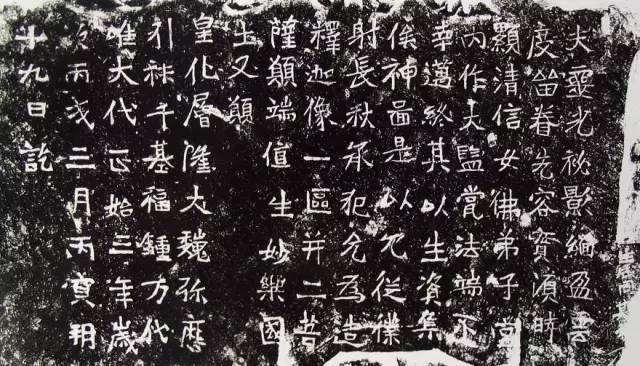 夫靈光祕影緬盈雲
度留眷先容實須時
顯清信女佛弟子
內作大監法端不
幸邁終其以生資集
俟神啚是以冗從僕
射長秋承祀允為造
釋迦像一區并二菩
薩願端值生妙樂國
土又願
皇化層隆大魏弥歷
引秩千基福鍾方代
唯大代正始三年歲
次丙戌三月丙寅朔
十九日訖